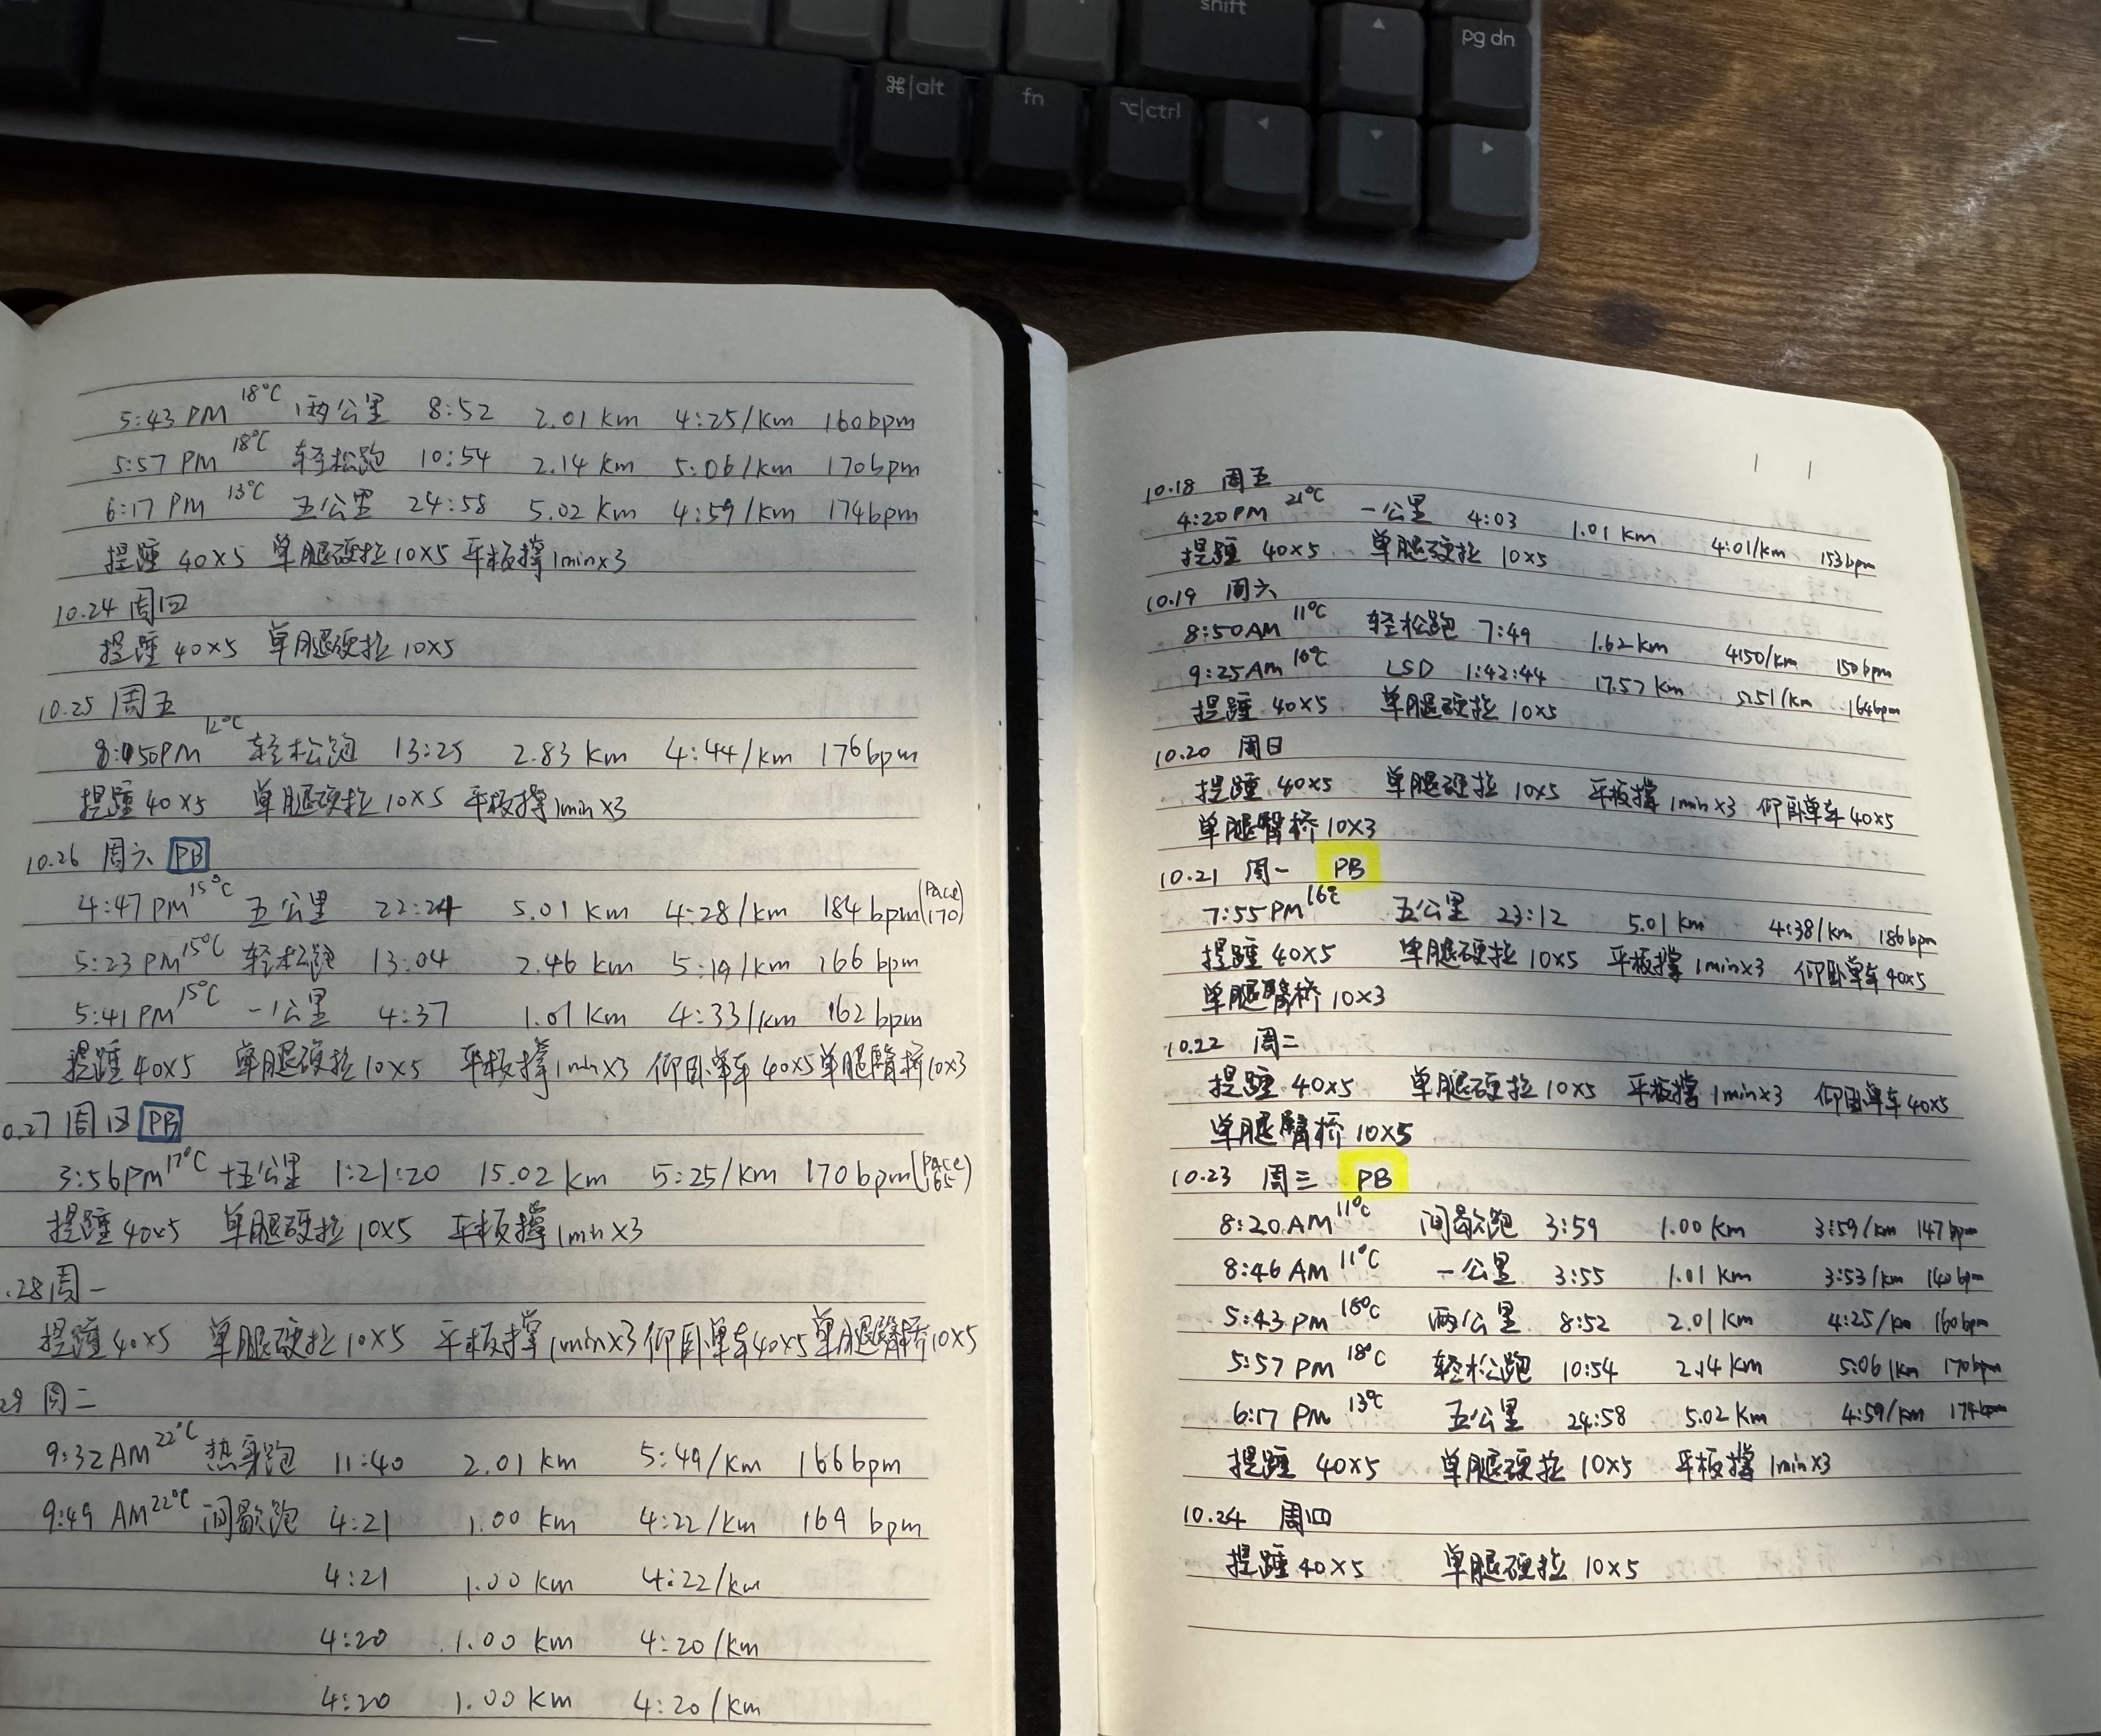 shift
pg dn
⌘|alt
fn
⌥|ctrl
5:43 PM 18°C 两公里 8:52 2.01 km 4:25/km 160bpm
5:57 PM 18°C 轻松跑 10:54 2.14 km 5:06/km 170bpm
6:17 PM 13°C 五公里 24:58 5.02 km 4:59/km 174bpm
提踵 40×5 单腿硬拉 10×5 平板撑 1min×3
10.24 周四
提踵 40×5 单腿硬拉 10×5
10.25 周五
12°C 轻松跑 13:25 2.83 km 4:44/km 176bpm
提踵 40×5 单腿硬拉 10×5 平板撑 1min×3
10.26 周六 PB
4:47 PM 15°C 五公里 22:24 5.01 km 4:28/km 184bpm (Pace 170)
5:23 PM 15°C 轻松跑 13:04 2.46 km 5:19/km 166 bpm
5:41 PM 15°C 一公里 4:37 1.01 km 4:33/km 162 bpm
提踵 40×5 单腿硬拉 10×5 平板撑 1min×3 仰卧单车 40×5 单腿臀桥 10×3
0.27 周日 PB
3:56pm 17°C 十五公里 1:21:20 15.02 km 5:25/km 170bpm (Pace 165)
提踵 40×5 单腿硬拉 10×5 平板撑 1min×3
.28 周一
提踵 40×5 单腿硬拉 10×5 平板撑 1min×3 仰卧单车 40×5 单腿臀桥 10×5
29 周二
9:32 AM 22°C 热身跑 11:40 2.01 km 5:49/km 166bpm
9:49 AM 22°C 间歇跑 4:21 1.00 km 4:22/km 169 bpm
4:21 1.00 km 4:22/km
4:20 1.00 km 4:20/km
4:20 1.00 km 4:20/km
10.18 周五
4:20PM 21°C 一公里 4:03 1.01 km 4:01/km 153bpm
提踵 40×5 单腿硬拉 10×5
10.19 周六
8:50AM 11°C 轻松跑 7:49 1.62 km 4:50/km 150bpm
9:25Am LSD 1:42:44 17.57 km 5:51/km 164bpm
提踵 40×5 单腿硬拉 10×5
10.20 周日
提踵 40×5 单腿硬拉 10×5 平板撑 1min×3 仰卧单车 40×5
单腿臀桥 10×3
10.21 周一 PB
7:55PM 16℃ 五公里 23:12 5.01 km 4:38/km 186bpm
提踵 40×5 单腿硬拉 10×5 平板撑 1min×3 仰卧单车 40×5
单腿臀桥 10×3
10.22 周二
提踵 40×5 单腿硬拉 10×5 平板撑 1min×3 仰卧单车 40×5
单腿臀桥 10×5
10.23 周三 PB
8:20 AM 11°C 间歇跑 3:59 1.00 km 3:59/km 147bpm
8:46 AM 11°C 一公里 3:55 1.01 km 3:53/km 140bpm
5:43 PM 18°C 两公里 8:52 2.01 km 4:25/km 160bpm
5:57 PM 18°C 轻松跑 10:54 2.14 km 5:06/km 170bpm
6:17 PM 13°C 五公里 24:58 5.02 km 4:59/km 174bpm
提踵 40×5 单腿硬拉 10×5 平板撑 1min×3
10.24 周四
提踵 40×5 单腿硬拉 10×5